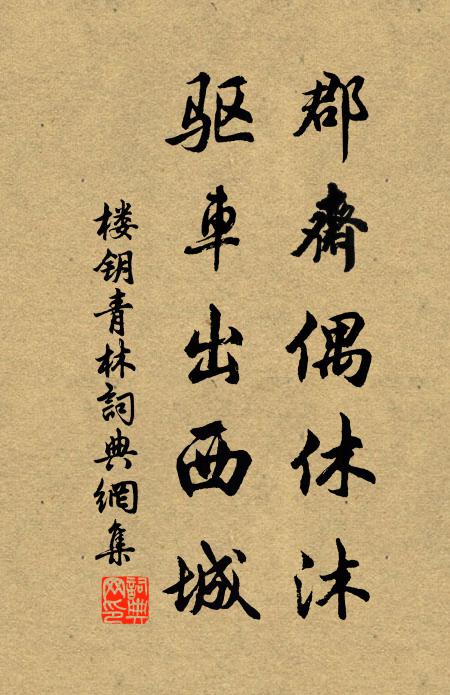 郡齋偶休沐
驱車出西城
楼钥青林詞典網集
詞典网印